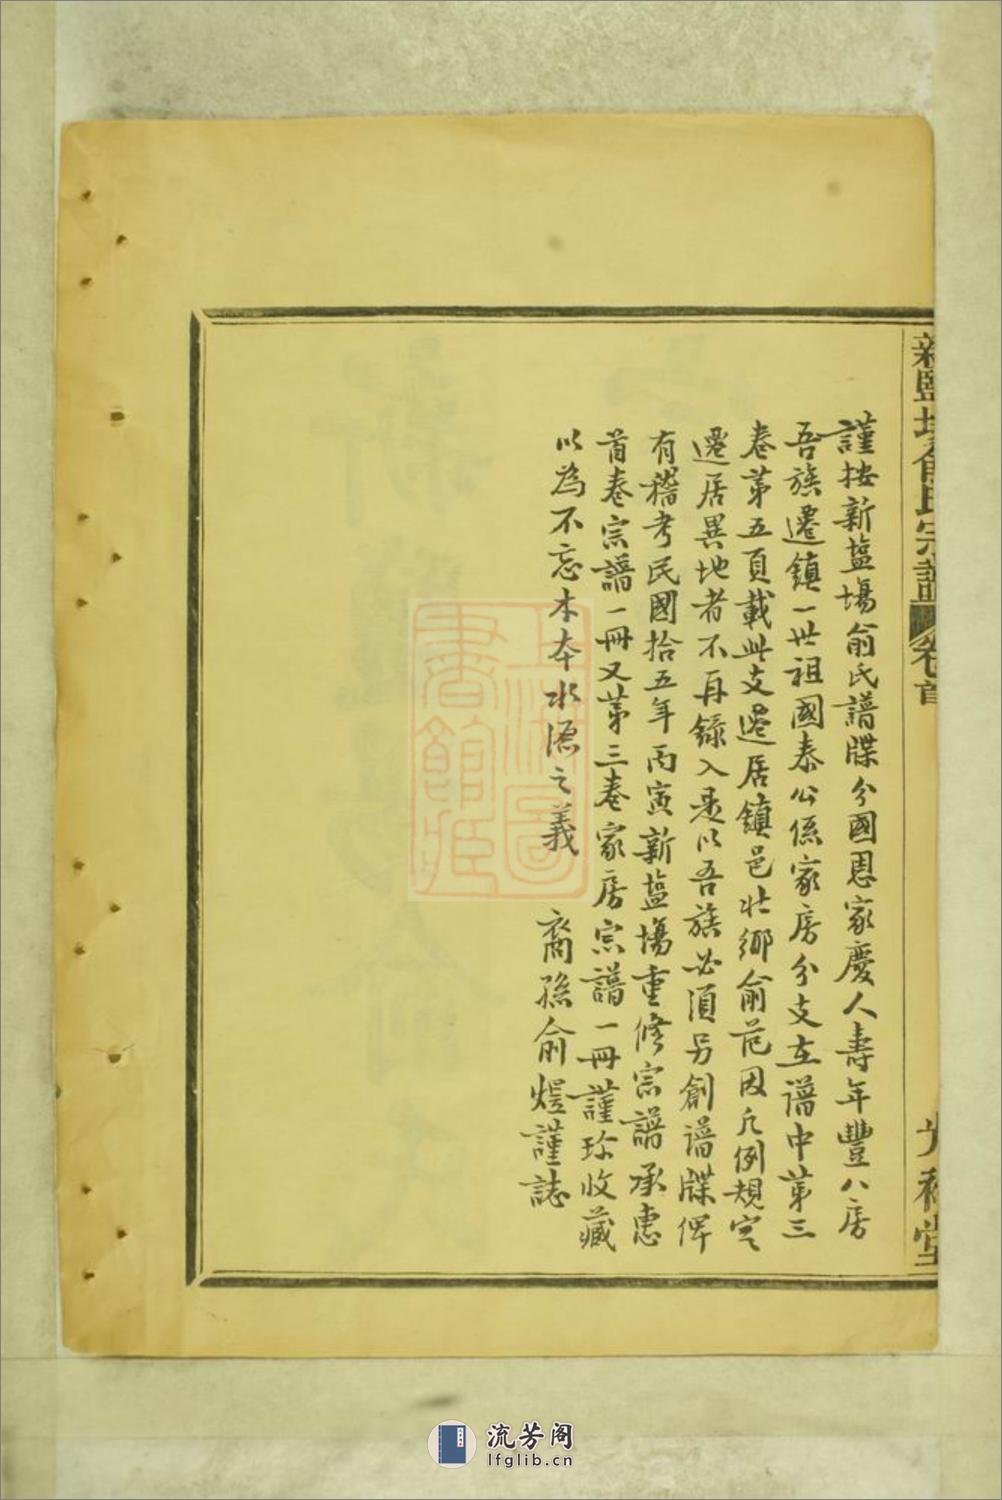 新鹽場俞氏宗譜 卷首
堂
謹按新盐場俞氏譜牒分國恩家慶人壽年豐八房
吾族遷鎮一世祖國泰公係家房分支在譜中第三
卷第五頁載此支遷居鎮邑壮鄉俞范因凡例規定
遷居異地者不再錄入是以吾族必須另創譜牒俾
有稽考民國拾五年丙寅新盐場重修宗譜承惠
首卷宗譜一冊又第三卷家房宗譜一冊謹珍收藏
以為不忘木本水源之義
裔孫俞煜謹誌
上海圖
書館藏
流芳阁
lfglib.cn